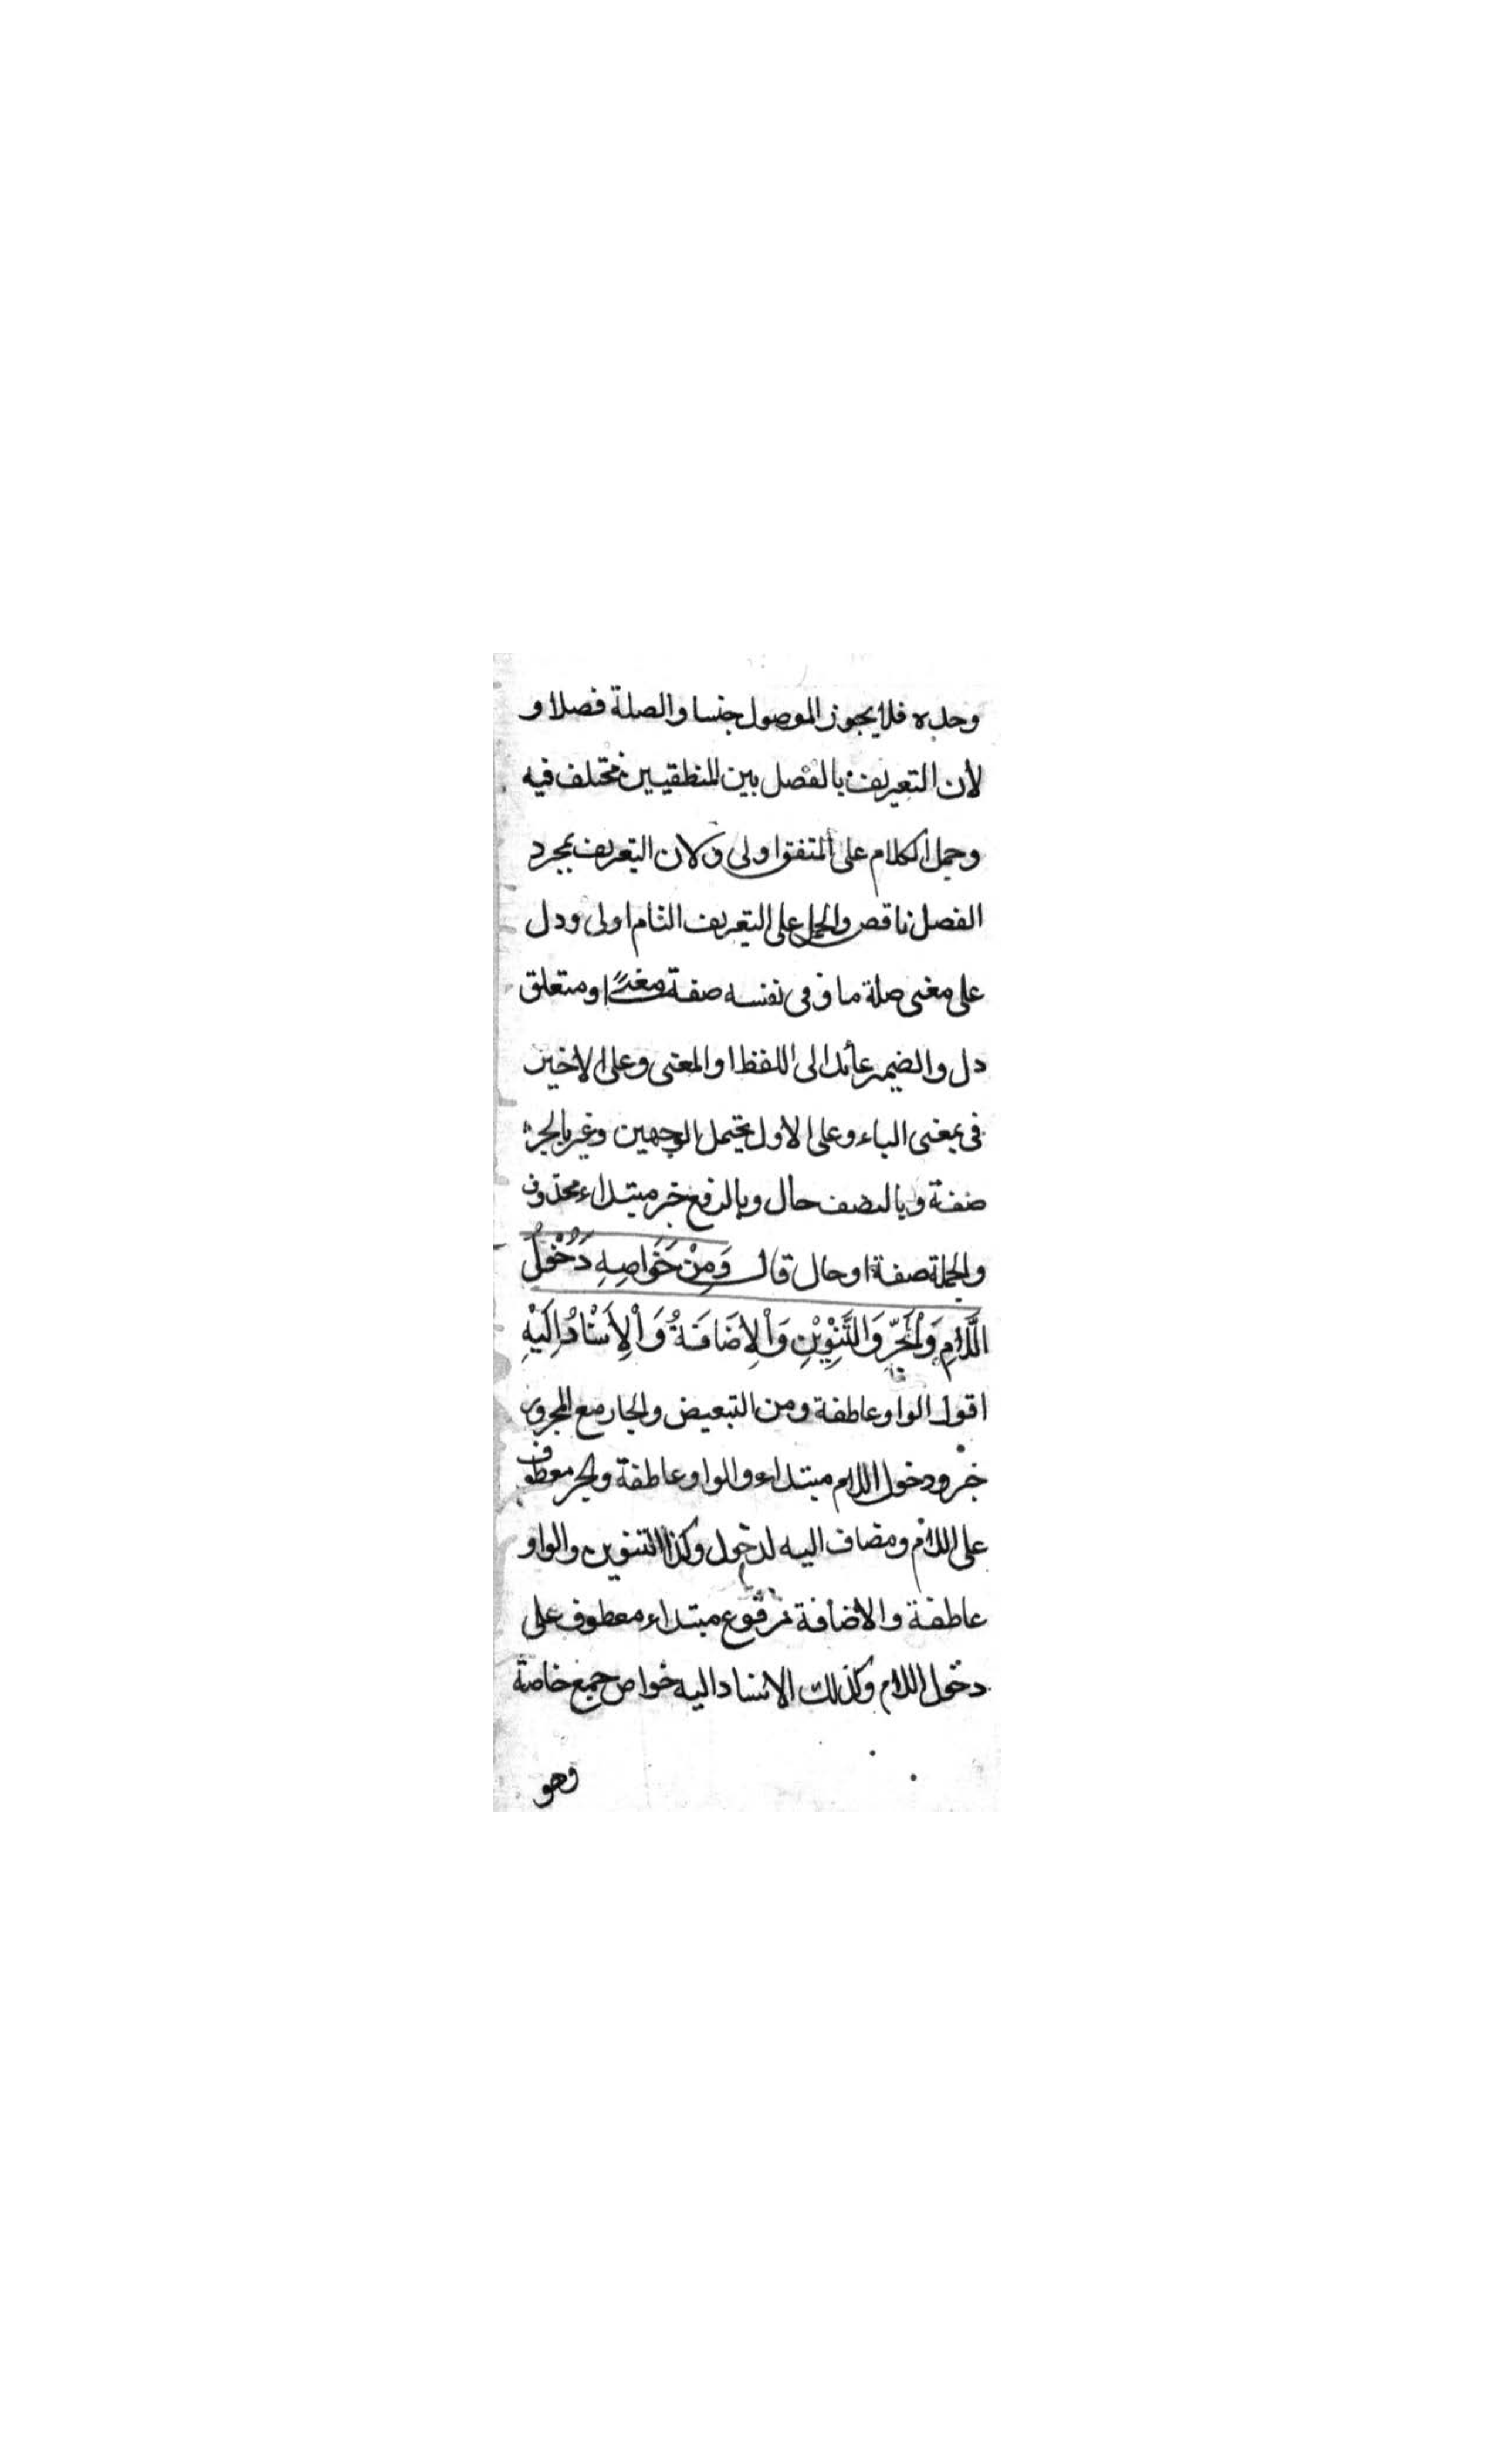 وحده فلا يجوز الموصول جنسا والصلة فصلا و
لأن التعريف بالفصل بين المنطقيين مختلف فيه
وحمل الكلام على المتفق اولى ولان التعريف بمجرد
الفصل ناقص والحمل على التعريف التام اولى ودل
على معنى صلة ما وفى نفسه صفة معنىً او متعلق
دل والضمير عائد الى اللفظ او المعنى وعلى الاخير
فى بمعنى الباء وعلى الاول يحتمل الوجهين وغير بالجر
صفة وبالنصف حال وبالرفع خبر مبتداء محذوف
والجملة صفة او حال قال وَمِنْ خَوَاصِهِ دَخُولُ
اللَّامِ وَالْجَرِّ وَالتَّنْوِيْنِ وَالْاِضَافَةُ وَالْاِسْنَادُ اِلَيْهِ
اقول الواو عاطفة ومن التبعيض والجار مع المجرور
خبر ودخول اللام مبتداء والواو عاطفة والجر معطوف
على اللام ومضاف اليه لدخول وكذا التنوين والواو
عاطفة والاضافة مرفوع مبتداء معطوف على
دخول اللام وكذلك الاسناد اليه خواص جمع خاصة
وهو